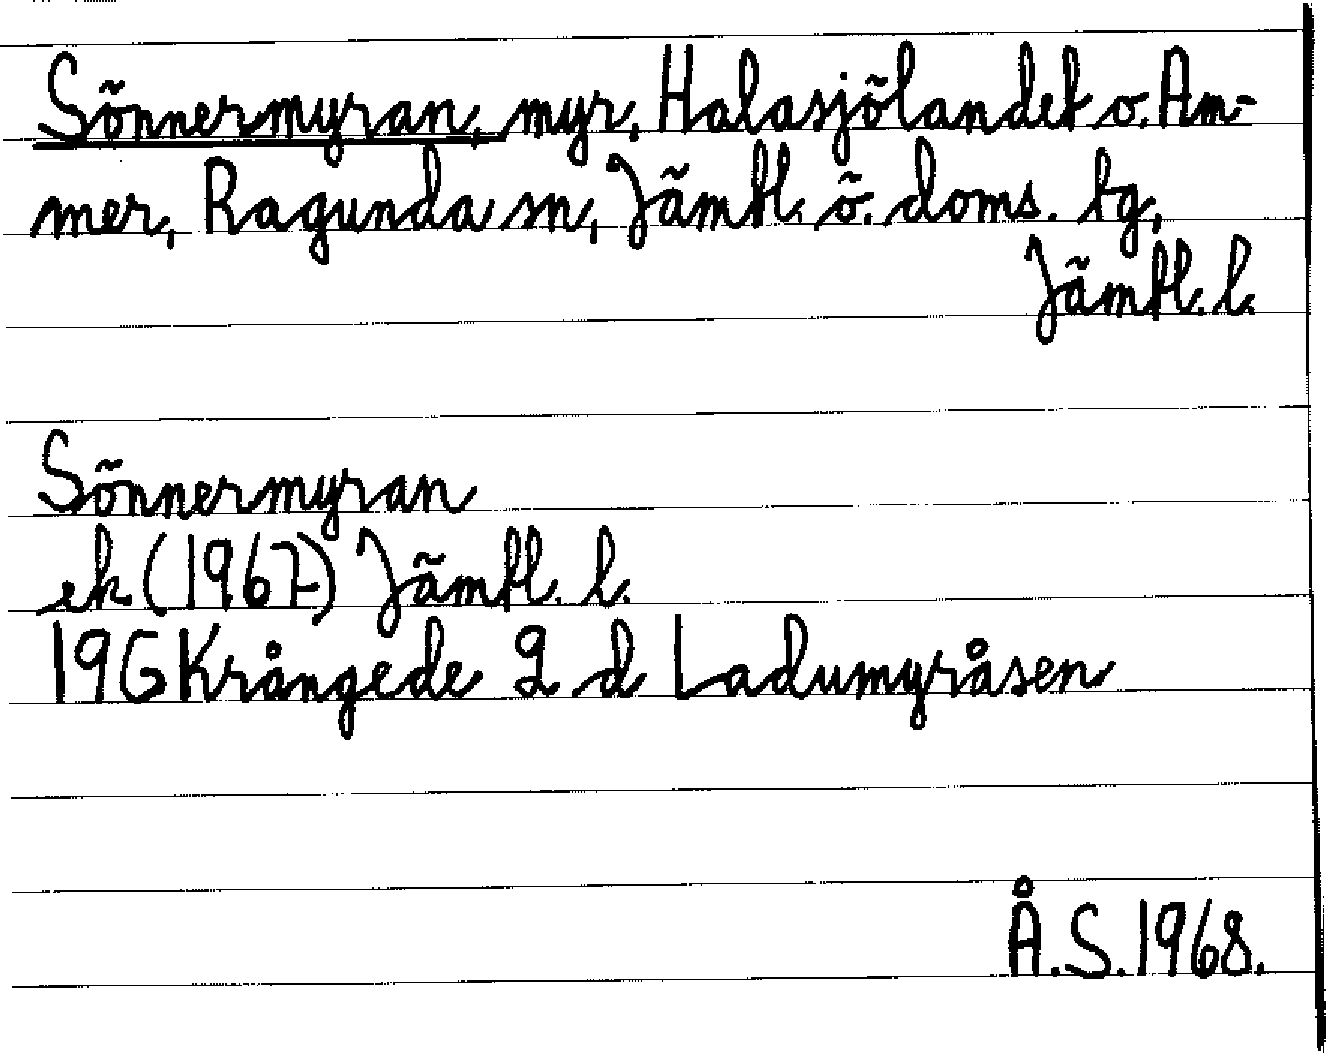 Sönnermyran, myr, Halasjölandet o. Am-
mer, Ragunda sn, Jämtl. ö. doms. tg,
Jämtl. l.
Sönnermyran
ek (1967) Jämtl. l.
19G Krångede 2 d Ladumyråsen
Å.S. 1968.